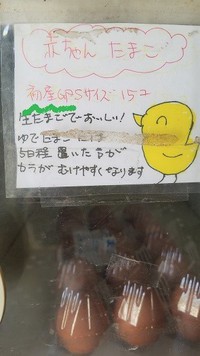 赤ちゃん たまご
初産卵 Sサイズ 15コ
生たまごでもおいしい!
ゆでたまごには
5日程 置いた方が
カラがむけやすくなります